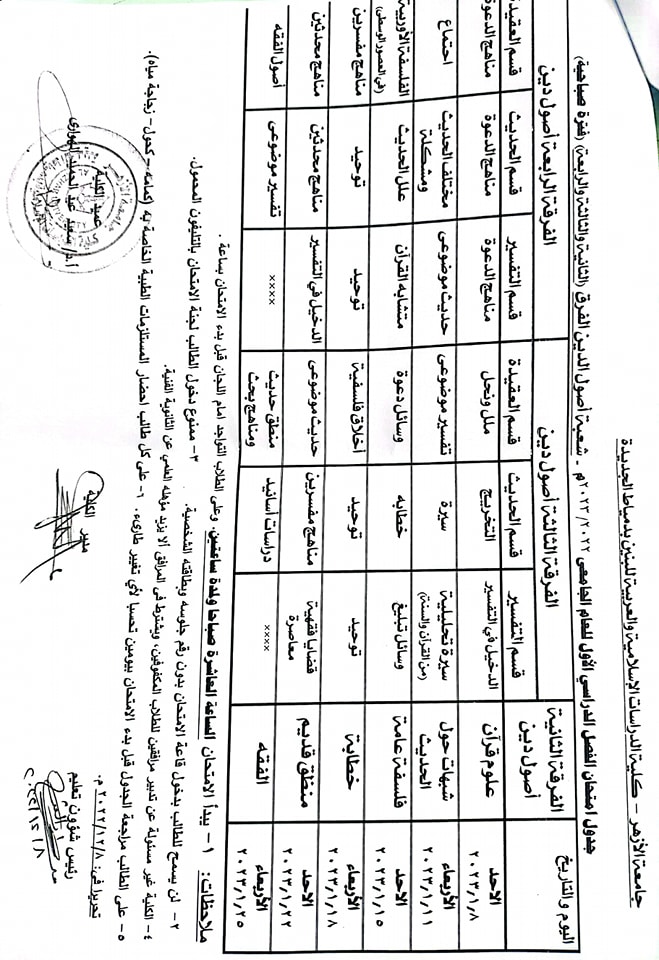 جامعة الأزهر – كلية الدراسات الإسلامية والعربية للبنين بدمياط الجديدة
جدول امتحان الفصل الدراسي الأول للعام الجامعي ٢٠٢٢/٢٠٢٣م - شعبة أصول الدين الفرق (الثانية والثالثة والرابعة) (فترة صباحية)
اليوم والتاريخ | الفرقة الثانية أصول دين | الفرقة الثالثة أصول دين | الفرقة الرابعة أصول دين
قسم التفسير | قسم الحديث | قسم العقيدة | قسم التفسير | قسم الحديث | قسم العقيدة
الاحد ٢٠٢٣/١/٨ | علوم قرآن | الدخيل في التفسير | التخريج | ملل ونحل | مناهج الدعوة | مناهج الدعوة | مناهج الدعوة
الأربعاء ٢٠٢٣/١/١١ | شبهات حول الحديث | سيرة تحليلية (من القرآن والسنة) | سيرة | تفسير موضوعى | حديث موضوعى | مختلف الحديث ومشكلة | اجتماع
الاحد ٢٠٢٣/١/١٥ | فلسفة عامة | وسائل تبليغ | خطابه | وسائل دعوة | متشابه القرآن | علل الحديث | الفلسفة الأوربية (في العصور الوسطى)
الأربعاء ٢٠٢٣/١/١٨ | خطابة | توحيد | توحيد | أخلاق فلسفية | توحيد | توحيد | مناهج مفسرين
الاحد ٢٠٢٣/١/٢٢ | منطق قديم | قضايا فقهية معاصرة | مناهج مفسرين | حديث موضوعى | الدخيل في التفسير | مناهج محدثين | مناهج محدثين
الأربعاء ٢٠٢٣/١/٢٥ | الفقه | ×××× | دراسات أسانيد | منطق حديث ومناهج بحث | ×××× | تفسير موضوعى | أصول الفقه
ملاحظات: ١- يبدأ الامتحان الساعة العاشرة صباحا ولمدة ساعتين. وعلى الطلاب التواجد امام اللجان قبل بدء الامتحان بساعة .
٢- لن يسمح للطالب بدخول قاعة الامتحان بدون رقم جلوسه وبطاقته الشخصية. ٣- ممنوع دخول الطالب لجنة الامتحان بالتليفون المحمول.
٤- الكلية غير مسئولة عن تدبير مرافقين للطلاب المكفوفين، ويشترط فى المرافق ألا يزيد مؤهله العلمي عن الثانوية الفنية.
٥- على الطالب مراجعة الجدول قبل بدء الامتحان بيومين تحسبا لأي تغيير طارىء. ٦- على كل طالب احضار المستلزمات الطبية الخاصة به (كمامه – كحول – زجاجة مياه).
تحريرا فى: ٢٠٢٢/١٢/٨ م.
رئيس شؤون تعليم
مدير الكلية
عميد الكلية
أ.د/ سعيد عبد الحميد الهوارى